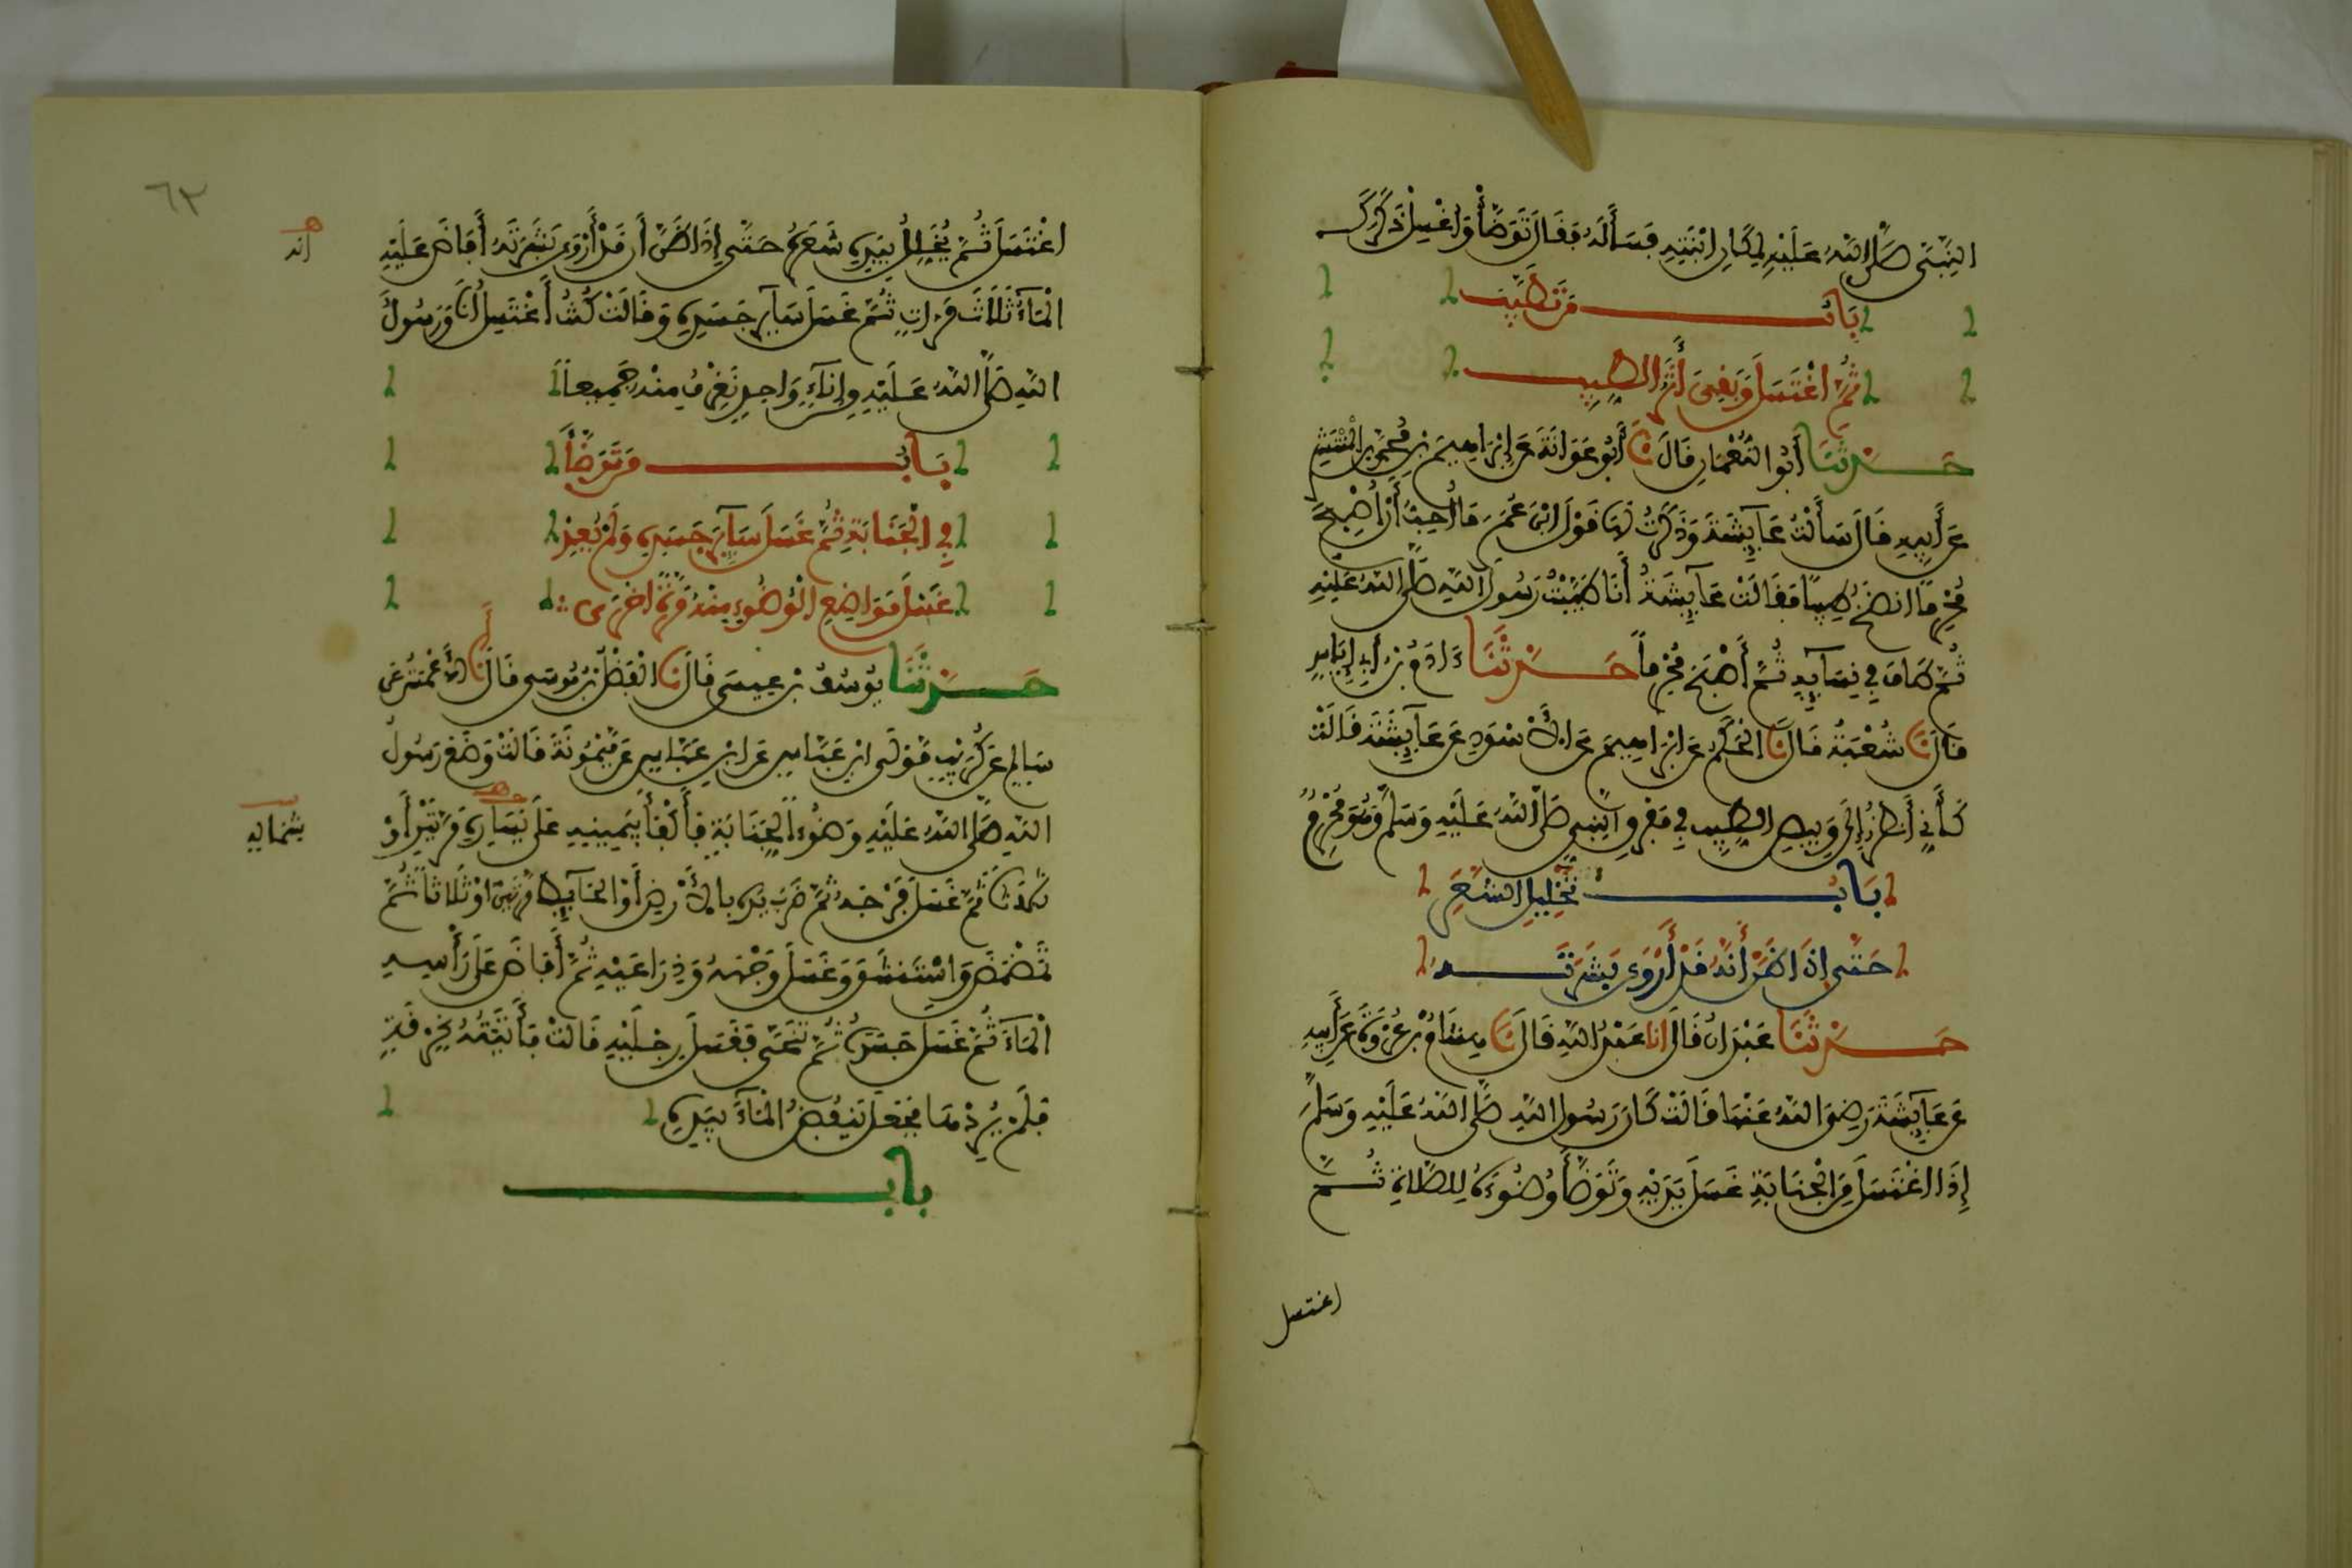 النَّبِيَّ صَلَّى اللَّهُ عَلَيْهِ لِمَكَانِ ابْنَتِهِ فَسَأَلَهُ فَقَالَ تَوَضَّأْ وَاغْسِلْ ذَكَرَكَ
بَابُ مَنْ تَطَيَّبَ
ثُمَّ اغْتَسَلَ وَبَقِيَ أَثَرُ الطِّيبِ
حَدَّثَنَا أَبُو النُّعْمَانِ قَالَ نَا أَبُو عَوَانَةَ عَنْ إِبْرَاهِيمَ بْنِ مُحَمَّدِ بْنِ الْمُنْتَشِرِ
عَنْ أَبِيهِ قَالَ سَأَلْتُ عَائِشَةَ وَذَكَرْتُ لَهَا قَوْلَ ابْنِ عُمَرَ مَا أُحِبُّ أَنْ أُصْبِحَ
مُحْرِمًا أَنْضَخُ طِيبًا فَقَالَتْ عَائِشَةُ أَنَا طَيَّبْتُ رَسُولَ اللَّهِ صَلَّى اللَّهُ عَلَيْهِ
ثُمَّ طَافَ فِي نِسَائِهِ ثُمَّ أَصْبَحَ مُحْرِمًا حَدَّثَنَا ءَادَمُ بْنُ أَبِي إِيَاسٍ
قَالَ نَا شُعْبَةُ قَالَ نَا الْحَكَمُ عَنْ إِبْرَاهِيمَ عَنِ الْأَسْوَدِ عَنْ عَائِشَةَ قَالَتْ
كَأَنِّي أَنْظُرُ إِلَى وَبِيصِ الطِّيبِ فِي مَفْرِقِ النَّبِيِّ صَلَّى اللَّهُ عَلَيْهِ وَسَلَّمَ وَهُوَ مُحْرِمٌ
بَابُ تَخْلِيلِ الشَّعَرِ
حَتَّى إِذَا ظَنَّ أَنَّهُ قَدْ أَرْوَى بَشَرَتَهُ
حَدَّثَنَا عَبْدَانُ قَالَ انا عَبْدُ اللَّهِ قَالَ نَا هِشَامُ بْنُ عُرْوَةَ عَنْ أَبِيهِ
عَنْ عَائِشَةَ رَضِيَ اللَّهُ عَنْهَا قَالَتْ كَانَ رَسُولُ اللَّهِ صَلَّى اللَّهُ عَلَيْهِ وَسَلَّمَ
إِذَا اغْتَسَلَ مِنَ الْجَنَابَةِ غَسَلَ يَدَيْهِ وَتَوَضَّأَ وُضُوءَهُ لِلصَّلَاةِ ثُمَّ
اغتسل
٦٢
اغْتَسَلَ ثُمَّ يُخَلِّلُ بِيَدِهِ شَعَرَهُ حَتَّى إِذَا ظَنَّ أَن قَدْ أَرْوَى بَشَرَتَهُ أَفَاضَ عَلَيْهِ
انه
الْمَاءَ ثَلَاثَ مَرَّاتٍ ثُمَّ غَسَلَ سَائِرَ جَسَدِهِ وَقَالَتْ كُنْتُ أَغْتَسِلُ أَنَا وَرَسُولُ
اللَّهِ صَلَّى اللَّهُ عَلَيْهِ مِن إِنَاءٍ وَاحِدٍ نَغْرِفُ مِنْهُ جَمِيعًا
بَابُ مَنْ تَوَضَّأَ
فِي الْجَنَابَةِ ثُمَّ غَسَلَ سَائِرَ جَسَدِهِ وَلَمْ يُعِدْ
غَسْلَ مَوَاضِعِ الْوُضُوءِ مِنْهُ مَرَّةً أُخْرَى
حَدَّثَنَا يُوسُفُ بْنُ عِيسَى قَالَ نَا الْفَضْلُ بْنُ مُوسَى قَالَ أَنَا الْأَعْمَشُ عَنْ
سَالِمٍ عَنْ كُرَيْبٍ مَوْلَى ابْنِ عَبَّاسٍ عَنِ ابْنِ عَبَّاسٍ عَنْ مَيْمُونَةَ قَالَتْ وَضَعَ رَسُولُ
اللَّهِ صَلَّى اللَّهُ عَلَيْهِ وَضُوءًا لِجَنَابَةٍ فَأَكْفَأَ بِيَمِينِهِ عَلَى يَسَارِهِ مَرَّتَيْنِ أَوْ
بشماله
ثَلَاثًا ثُمَّ غَسَلَ فَرْجَهُ ثُمَّ ضَرَبَ يَدَهُ بِالْأَرْضِ أَوِ الْحَائِطِ مَرَّتَيْنِ أَوْ ثَلَاثًا ثُمَّ
تَمَضْمَضَ وَاسْتَنْشَقَ وَغَسَلَ وَجْهَهُ وَذِرَاعَيْهِ ثُمَّ أَفَاضَ عَلَى رَأْسِهِ
الْمَاءَ ثُمَّ غَسَلَ جَسَدَهُ ثُمَّ تَنَحَّى فَغَسَلَ رِجْلَيْهِ قَالَتْ فَأَتَيْتُهُ بِخِرْقَةٍ
فَلَمْ يُرِدْهَا فَجَعَلَ يَنْفُضُ الْمَاءَ بِيَدِهِ
بَابُ